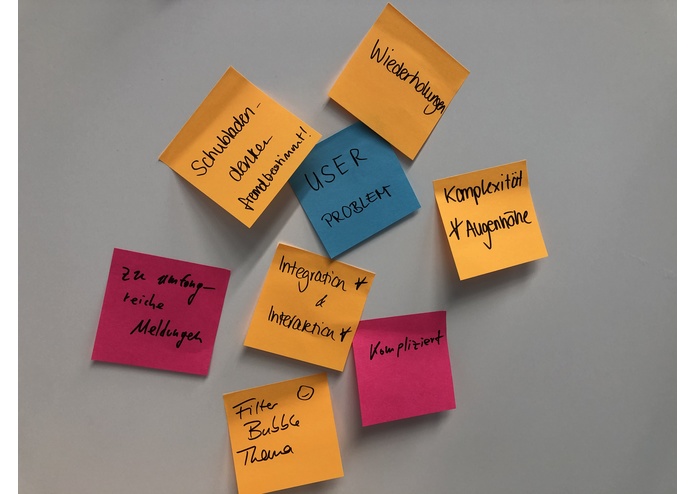 Wiederholungen
Schubladen-
denken
fremdbestimmt!
USER
PROBLEM
Komplexität
* Augenhöhe
Zu umfang-
reiche
Meldungen
Integration *
&
Interaktion *
Kompliziert
Filter
Bubble
Thema